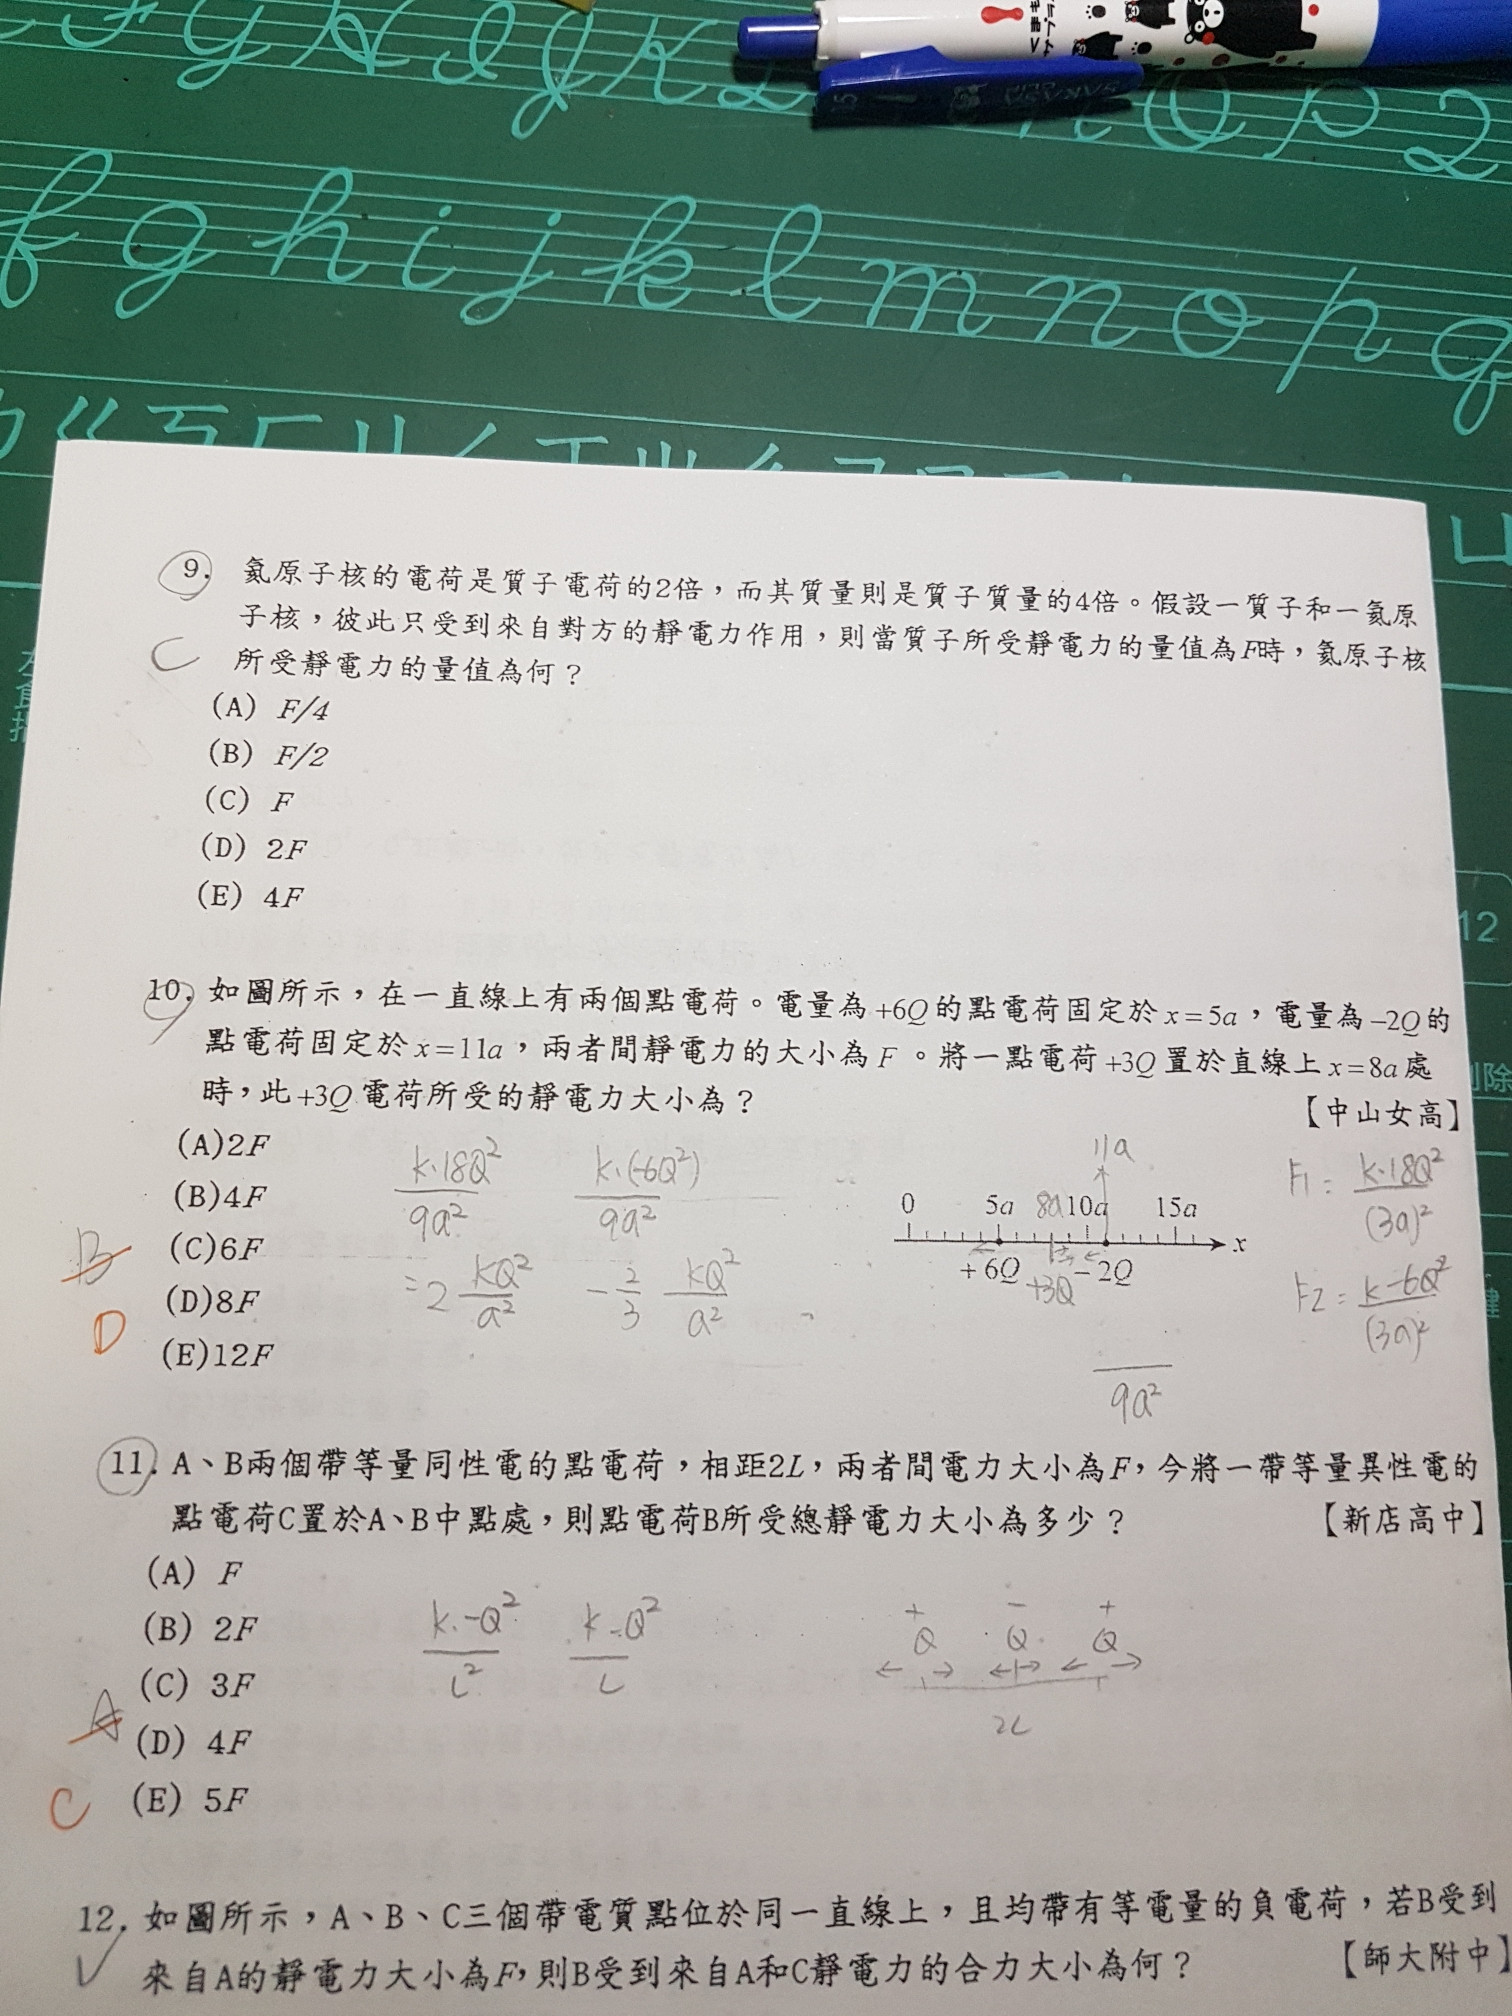 f g h i j k l m n o p q
12
9. 氦原子核的電荷是質子電荷的2倍，而其質量則是質子質量的4倍。假設一質子和一氦原
子核，彼此只受到來自對方的靜電力作用，則當質子所受靜電力的量值為F時，氦原子核
所受靜電力的量值為何？
C
(A) F/4
(B) F/2
(C) F
(D) 2F
(E) 4F
10. 如圖所示，在一直線上有兩個點電荷。電量為+6Q的點電荷固定於x=5a，電量為-2Q的
點電荷固定於x=11a，兩者間靜電力的大小為F。將一點電荷+3Q置於直線上x=8a處
時，此+3Q電荷所受的靜電力大小為？
【中山女高】
(A)2F
(B)4F
(C)6F
(D)8F
(E)12F
B
D
k·18Q²
9a²
k·(-6Q²)
9a²
=2 kQ²
a²
-2/3 kQ²
a²
11a
0 5a 8a 10a 15a
x
+6Q +3Q -2Q
F1 = k·18Q²
(3a)²
F2 = k-6Q²
(3a)²
9a²
11. A、B兩個帶等量同性電的點電荷，相距2L，兩者間電力大小為F，今將一帶等量異性電的
點電荷C置於A、B中點處，則點電荷B所受總靜電力大小為多少？
【新店高中】
(A) F
(B) 2F
(C) 3F
(D) 4F
(E) 5F
A
C
k·-Q²
L²
k-Q²
L
+ - +
Q Q Q
2L
12. 如圖所示，A、B、C三個帶電質點位於同一直線上，且均帶有等電量的負電荷，若B受到
來自A的靜電力大小為F，則B受到來自A和C靜電力的合力大小為何？
【師大附中】